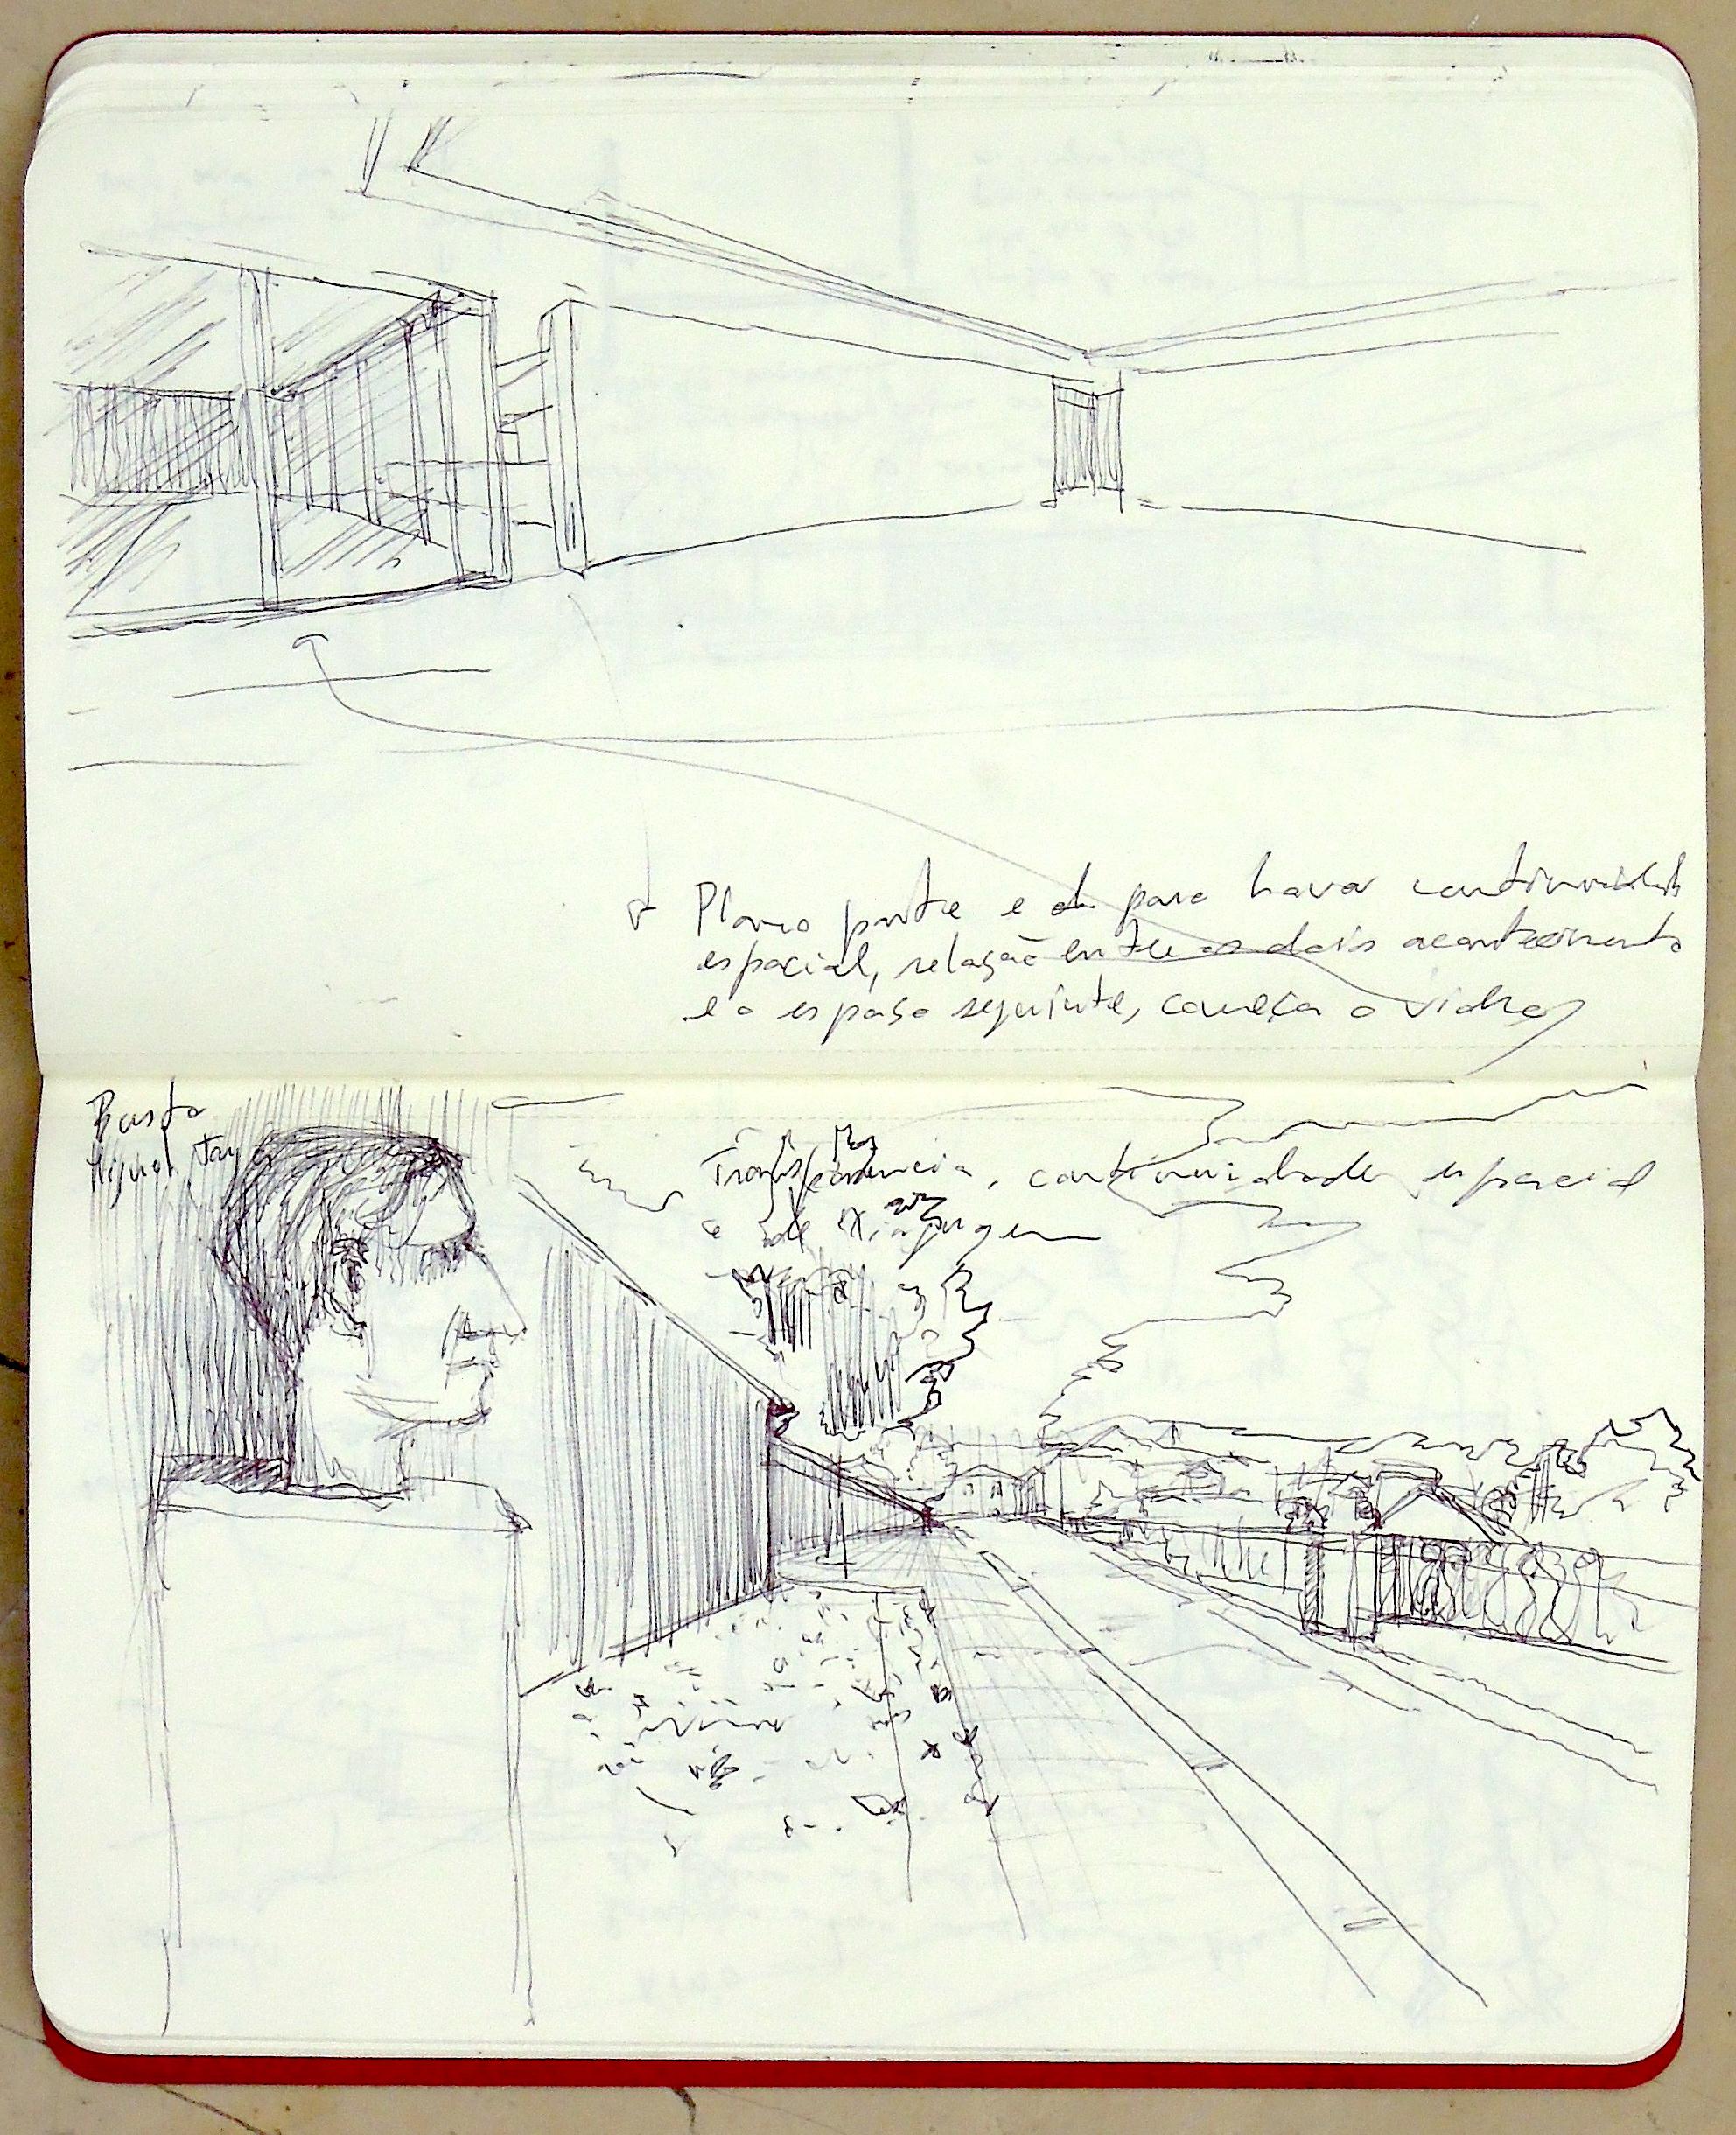 Plano parte e da para haver continuidade
espacial, relação entre os dois acontecimento
e o espaço seguinte, começa o vidro
Busto
Miguel
Transparencia, continuidade espacial
e de